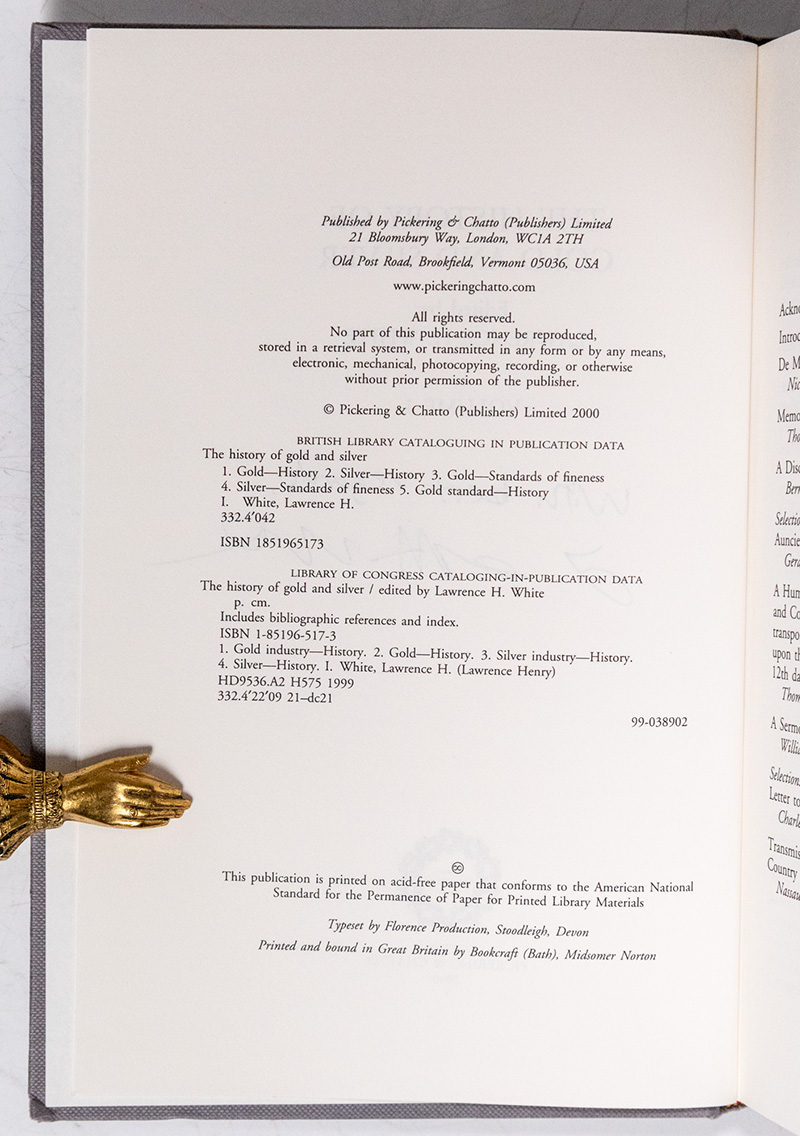 Published by Pickering & Chatto (Publishers) Limited
21 Bloomsbury Way, London, WC1A 2TH
Old Post Road, Brookfield, Vermont 05036, USA
www.pickeringchatto.com
All rights reserved.
No part of this publication may be reproduced,
stored in a retrieval system, or transmitted in any form or by any means,
electronic, mechanical, photocopying, recording, or otherwise
without prior permission of the publisher.
© Pickering & Chatto (Publishers) Limited 2000
BRITISH LIBRARY CATALOGUING IN PUBLICATION DATA
The history of gold and silver
1. Gold—History 2. Silver—History 3. Gold—Standards of fineness
4. Silver—Standards of fineness 5. Gold standard—History
I. White, Lawrence H.
332.4′042
ISBN 1851965173
LIBRARY OF CONGRESS CATALOGING-IN-PUBLICATION DATA
The history of gold and silver / edited by Lawrence H. White
p. cm.
Includes bibliographic references and index.
ISBN 1-85196-517-3
1. Gold industry—History. 2. Gold—History. 3. Silver industry—History.
4. Silver—History. I. White, Lawrence H. (Lawrence Henry)
HD9536.A2 H575 1999
332.4′22′09 21–dc21
99-038902
This publication is printed on acid-free paper that conforms to the American National
Standard for the Permanence of Paper for Printed Library Materials
Typeset by Florence Production, Stoodleigh, Devon
Printed and bound in Great Britain by Bookcraft (Bath), Midsomer Norton
Ackno
Introd
De M
Nic
Memo
Tho
A Disc
Bern
Selectio
Auncie
Gera
A Hum
and Co
transpo
upon th
12th da
Thom
A Sermo
Willia
Selection
Letter to
Charle
Transmis
Country
Nassau